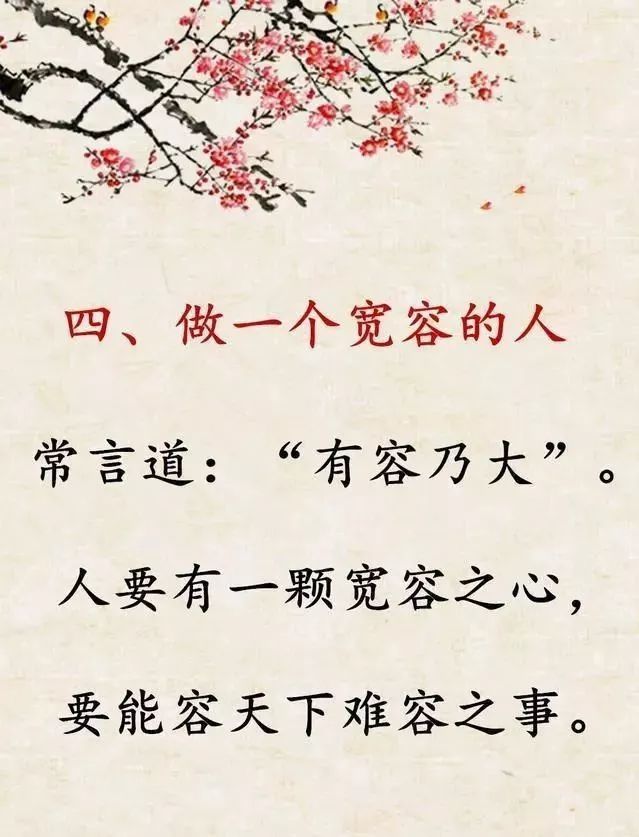 四、做一个宽容的人
常言道：“有容乃大”。
人要有一颗宽容之心，
要能容天下难容之事。